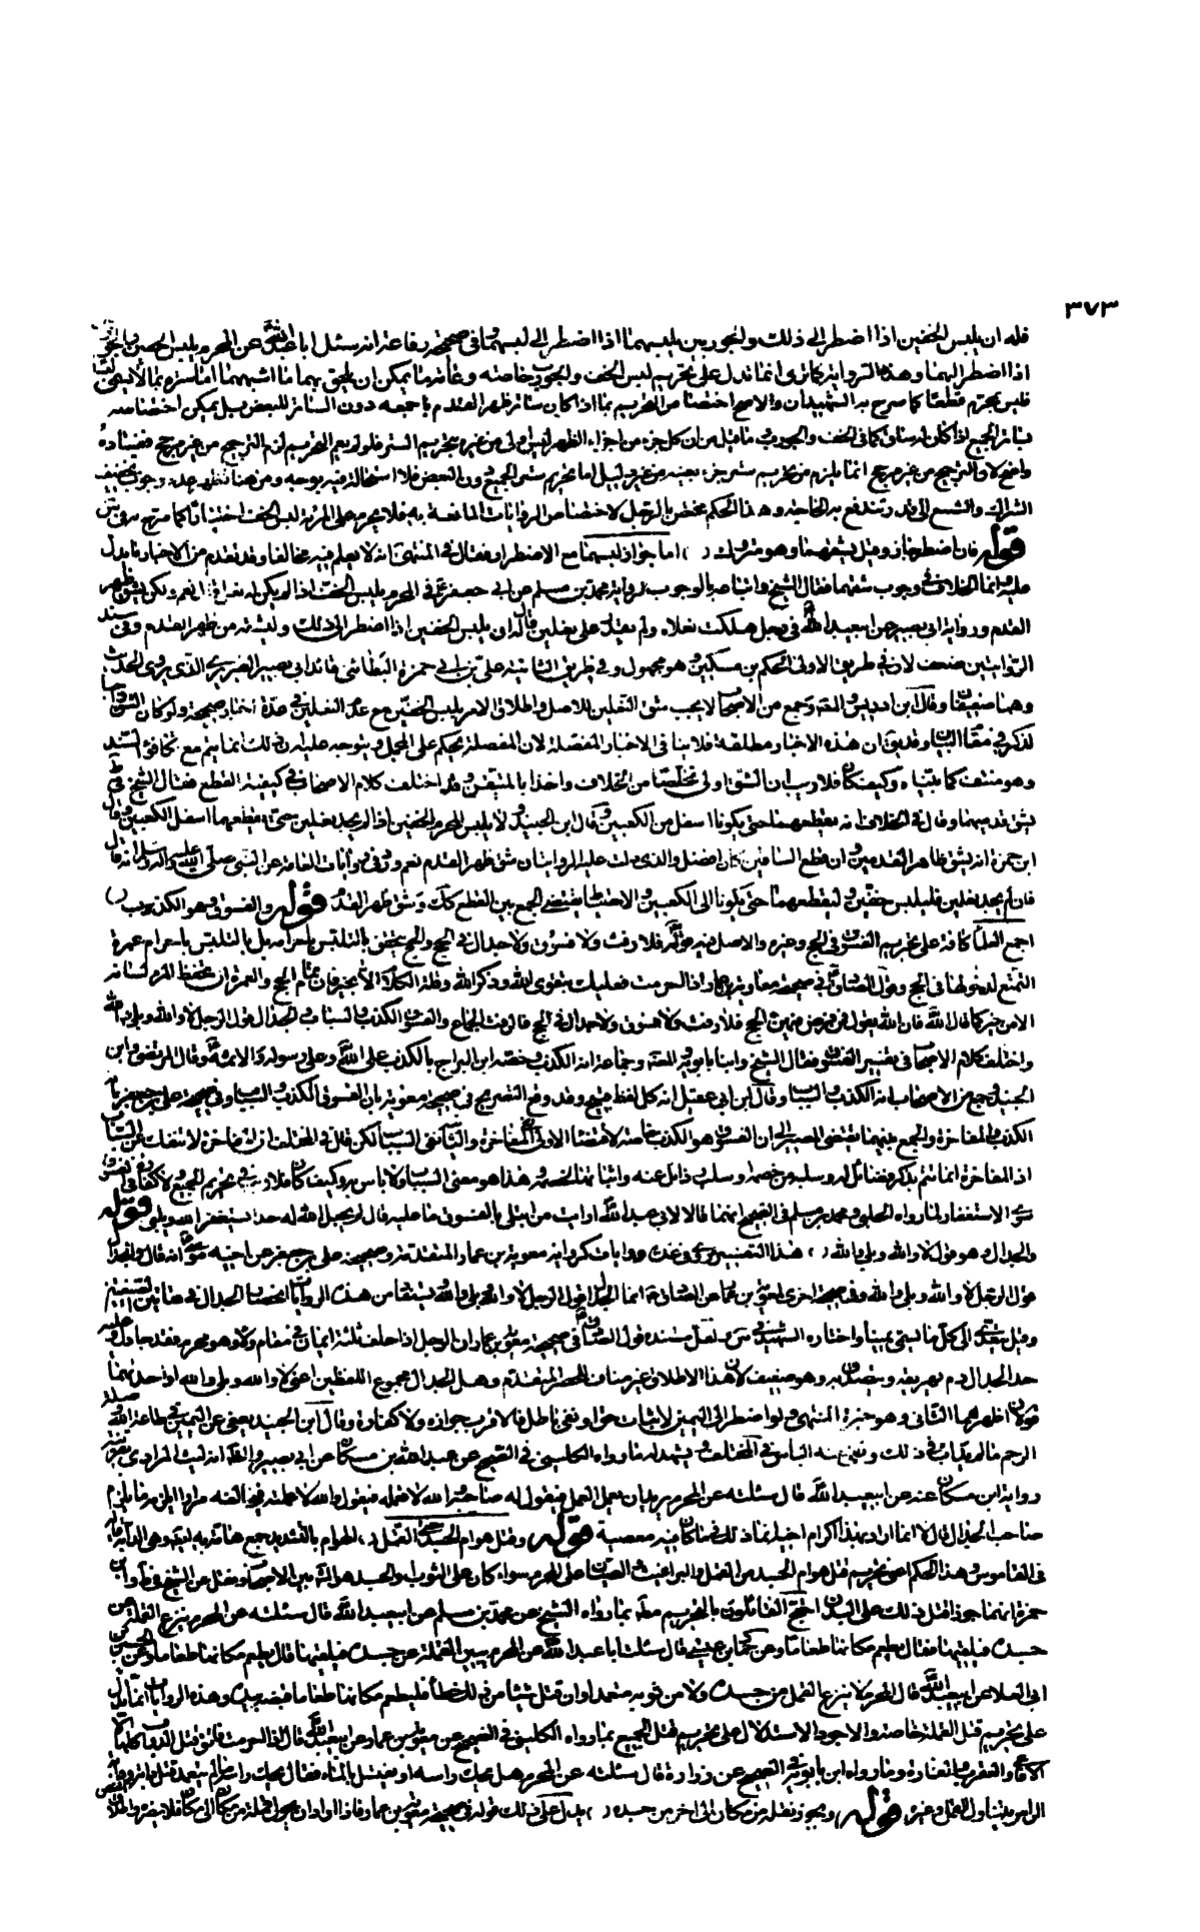 ٣٧٣
فله ان يلبس الخفين اذا اضطر الى ذلك والجوربين يلبسهما اذا اضطر الى لبسهما وفى صحيحة رفاعة انه سئل ابا عبد الله عن المحرم يلبس الخفين والجوربين
اذا اضطر اليهما وهذه الرواية كما ترى انما تدل على تحريم لبس الخف والجورب خاصة و يمكن ان يلحق بهما ما اشبههما اما ستره بما لا يسمى لبسا
فليس بمحرم قطعا كما صرح به الشهيدان والاصح اختصاص التحريم بما اذا كان ساتر ظهر القدم باجمعه دون الساتر للبعض بل يمكن اختصاصه
بساتر الجميع اذا كان له ساق كما فى الخف والجورب وما قيل من ان كل جزء من اجزاء الظهر ليس اولى من غيره بتحريم الستر فلو لم يعم التحريم لزم الترجيح من غير مرجح ففساده
واضح لان الترجيح من غير مرجح انما يلزم من تحريم ستر جزء بعينه من غير دليل اما تحريم ستر الجميع دون البعض فلا استحالة فيه بوجه ومن هنا تظهر عدم وجوب تخفيف
الشراك والشسع الى قدر تندفع به الحاجة وهذا الحكم مختص بالرجل لاختصاص الروايات المانعة به فلا يحرم على المرئة لبس الخف اختيارا كما صرح به
قوله فان اضطر جاز وقيل يشقهما وهو متروك اما جواز لبسهما مع الاضطرار فقال فى المنتهى انه لا يعلم فيه مخالفا وقد تقدم من الاخبار ما يدل
عليه انما الخلاف فى وجوب شقهما فقال الشيخ واتباعه بالوجوب لرواية محمد بن مسلم عن ابى جعفر فى المحرم يلبس الخف اذا لم يكن له نعل قال نعم ولكن يشق ظهر
القدم ورواية ابى بصير عن ابيعبد الله فى رجل هلكت نعلاه ولم يقدر على نعلين قال له ان يلبس الخفين اذا اضطر الى ذلك وليشقه من ظهر القدم وفى سند
الروايتين ضعف لان فى طريق الاولى الحكم بن مسكين وهو مجهول وفى طريق الثانية على بن ابى حمزة البطائنى قائد ابى بصير الضرير الذى يروى الحديث
وهما ضعيفان وقال ابن ادريس والمحقق وجمع من الاصحاب لا يجب شق النعلين للاصل واطلاق الامر بلبس الخفين مع عدم النعلين فى عدة اخبار صحيحة ولو كان الشق واجبا
لذكر فى مقام البيان وقد يق ان هذه الاخبار مطلقة فلا ينافى الاخبار المفصلة لان المفصلة يحكم على المجمل ويتوجه عليه ان ذلك انما يتم مع تكافؤ السند
وهو منتف كما بيناه وكيف كان فلا ريب ان الشق اولى تخلصا من الخلاف واخذا بالمتيقن وقد اختلف كلام الاصحاب فى كيفية القطع فقال الشيخ فى ط
يشق قدميهما وقال فى الخلاف انه يقطعهما حتى يكونا اسفل من الكعبين وقال ابن الجنيد لا يلبس المحرم الخفين اذا لم يجد نعلين حتى يقطعهما اسفل الكعبين وقال
ابن حمزة انه يشق ظاهر القدمين وان قطع الساقين كان افضل والذى دلت عليه الروايتان شق ظهر القدم نعم ورد فى روايات العامة عن النبى صلى الله عليه وآله وسلم انه قال
فان لم يجد نعلين فليلبس خفين وليقطعهما حتى يكونا الى الكعبين والاحتياط يقتضى الجمع بين القطع كذلك وشق ظهر القدم قوله والفسوق وهو الكذب
اجمع العلماء كافة على تحريم الفسوق فى الحج وغيره والاصل فيه قوله تعالى فلا رفث ولا فسوق ولا جدال فى الحج والحج يتحقق بالتلبس باحرامه بل بالتلبس باحرام عمرة
التمتع لدخولها فى الحج وقول الصادق فى صحيحة معاوية بن عمار اذا احرمت فعليك بتقوى الله وذكر الله وقلة الكلام الا بخير فان تمام الحج والعمرة ان يحفظ المرء لسانه
الا من خير كما قال الله فان الله يقول فمن فرض فيهن الحج فلا رفث ولا فسوق ولا جدال فى الحج فالرفث الجماع والفسوق الكذب والسباب والجدال قول الرجل لا والله وبلى والله
واختلف كلام الاصحاب فى تفسير الفسوق فقال الشيخ وابنا بابويه والمحقق وجماعة انه الكذب وخصه ابن البراج بالكذب على الله وعلى رسوله والائمة وقال المرتضى وابن
الجنيد وجمع من الاصحاب انه الكذب والسباب وقال ابن ابى عقيل انه كل لفظ قبيح وقد وقع التصريح فى صحيحة معوية بان الفسوق الكذب والسباب وفى صحيحة على بن جعفر بانه
الكذب والمفاخرة والجمع بينهما يقتضى المصير الى ان الفسوق هو الكذب خاصة لاقتضاء الاولى نفى المفاخرة والثانى نفى السباب لكن قال فى المختلف ان المفاخرة لا تنفك عن السباب
اذ المفاخرة انما تتم بذكر فضائل له وسلبها من خصمه او سلب رذائل عنه واثباتها لخصمه وهذا هو معنى السباب ولا باس به وكيف كان فلا ريب فى تحريم الجميع ولا كفارة فى الفسوق
سوى الاستغفار لما رواه الحلبى ومحمد بن مسلم فى الصحيح انهما قالا لابى عبد الله ارايت من ابتلى بالفسوق ما عليه قال لم يجعل الله له حدا يستغفر الله ويلبى قوله
والجدال وهو قول لا والله وبلى والله هذا التفسير مروى فى عدة روايات كرواية معوية بن عمار المتقدمة وصحيحة على بن جعفر عن اخيه موسى انه قال والجدال
قول الرجل لا والله وبلى والله وفى صحيحة اخرى لمعوية بن عمار عن الصادق انما الجدال قول الرجل لا والله وبلى والله يستفاد من هذه الروايات انحصار الجدال فى هاتين الصيغتين
وقيل يتعدى الى كل ما يسمى يمينا واختاره الشهيد فى س ولعل مستنده قول الصادق فى صحيحة معوية بن عمار ان الرجل اذا حلف ثلثة ايمان فى مقام ولاء وهو محرم فقد جادل وعليه
حد الجدال دم يهريقه ويتصدق به وهو ضعيف لان هذا الاطلاق غير مناف للحصر المتقدم وهل الجدال مجموع اللفظين اعنى لا والله وبلى والله او احدهما
قولان اظهرهما الثانى وهو خيرة المنتهى ولو اضطر الى اليمين لاثبات حق او نفى باطل فالاقرب جوازه ولا كفارة وقال ابن الجنيد يعفى عن اليمين فى طاعة الله وصلة
الرحم ما لم يداب فى ذلك ونفى عنه الباس فى المختلف ويشهد له ما رواه الكلينى فى الصحيح عن عبد الله بن مسكان عن ابى بصير والظاهر انه ليث المرادى بقرينة
رواية ابن مسكان عنه عن ابيعبد الله قال سئلته عن المحرم يريد ان يعمل العمل فيقول له صاحبه والله لا تعمله فيقول والله لاعملنه فيحالفه مرارا ايلزمه ما يلزم
صاحب الجدال قال لا انما اراد بهذا اكرام اخيه انما ذلك ما كان فيه معصية قوله وقتل هوام الجسد حتى القمل الهوام بالتشديد جمع هامة وهى الدابة قاله
فى القاموس وهذا الحكم اعنى تحريم قتل هوام الجسد من القمل والبراغيث والصئبان على المحرم سواء كان على الثوب او الجسد هو المشهور بين الاصحاب ونقل عن الشيخ فى ط وابن
حمزة انهما جوزا قتل ذلك على البدن احتج القائلون بالتحريم مطلقا بما رواه الشيخ عن محمد بن مسلم عن ابيعبد الله قال سئلته عن المحرم ينزع القملة عن
جسده فيلقيها فقال يطعم مكانها طعاما وعن حماد بن عيسى قال سئلت ابا عبد الله عن المحرم يبين القملة عن جسده فيلقيها قال يطعم مكانها طعاما وعن الحسين بن
ابى العلا عن ابيعبد الله قال المحرم لا ينزع القمل من جسده ولا من ثوبه متعمدا وان قتل شيئا من ذلك خطأ فليطعم مكانها طعاما قبضة بيده وهذه الروايات انما تدل
على تحريم قتل القملة خاصة والاجود الاستدلال على تحريم قتل الجميع بما رواه الكلينى فى الصحيح عن معوية بن عمار عن ابيعبد الله قال اذا احرمت فاتق قتل الدواب كلها الا
الافعى والعقرب والفارة وما رواه ابن بابويه فى الصحيح عن زرارة قال سئلته عن المحرم هل يحك راسه او يغتسل بالماء فقال يحك راسه ما لم يتعمد قتل دابة
الرابع يتناول القمل وغيره قوله ويجوز نقله من مكان الى اخر من جسده يدل على ذلك قوله فى صحيحة معوية بن عمار فاذا اراد ان يحول قملة من مكان الى مكان فلا يضره واطلاق